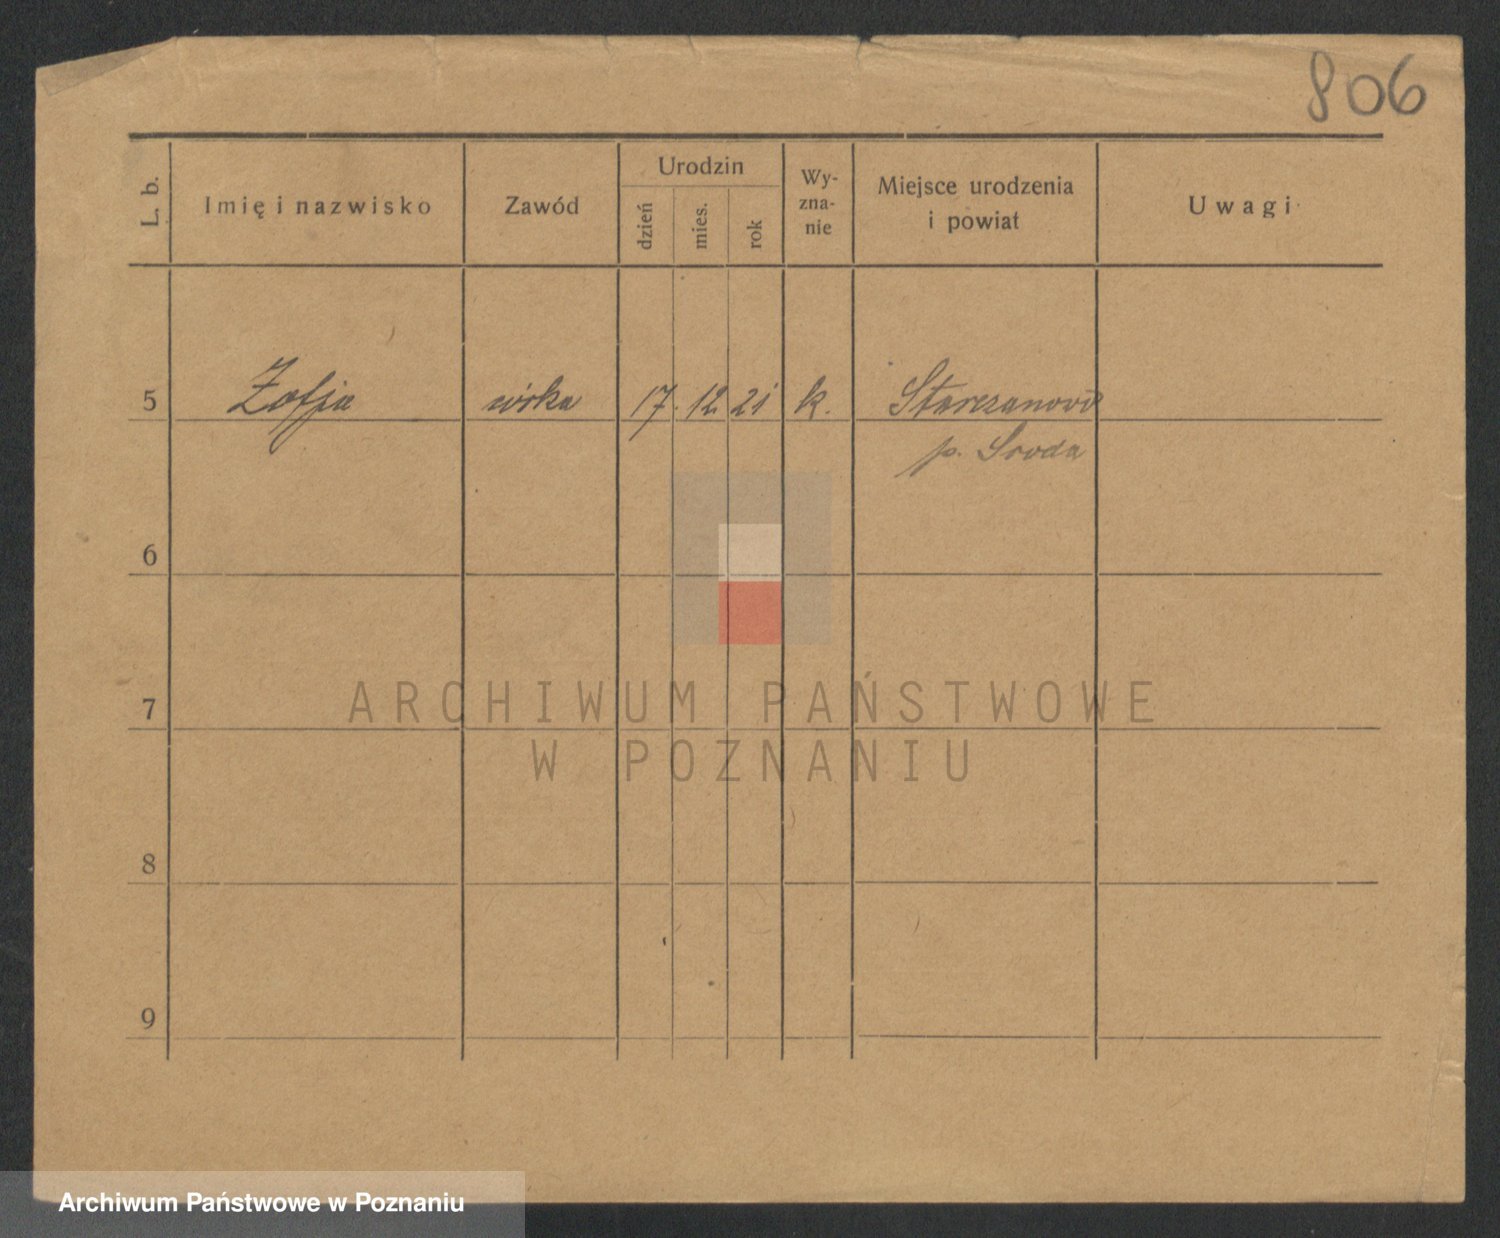 806
L. b.
Imię i nazwisko
Zawód
Urodzin
dzień
mies.
rok
Wy-
zna-
nie
Miejsce urodzenia
i powiat
Uwagi
5 Zofja córka 17. 12 21 k. Starczanowo
p. Sroda
6
7
8
9
ARCHIWUM PAŃSTWOWE
W POZNANIU
Archiwum Państwowe w Poznaniu